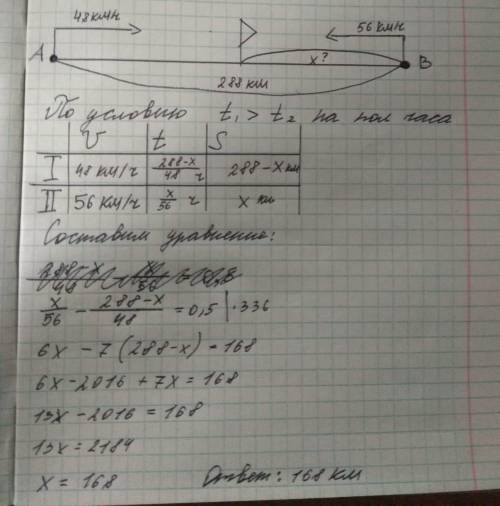 48 кмч
56 кмч
A
x?
B
288 км
По условию t₁ > t₂ на пол часа
V t S
I 48 км/ч (288-x)/48 ч 288-x км
II 56 км/ч x/56 ч x км
Составим уравнение:
x/56 - (288-x)/48 = 0,5 | ·336
6x - 7(288-x) = 168
6x - 2016 + 7x = 168
13x - 2016 = 168
13x = 2184
x = 168 Ответ: 168 км